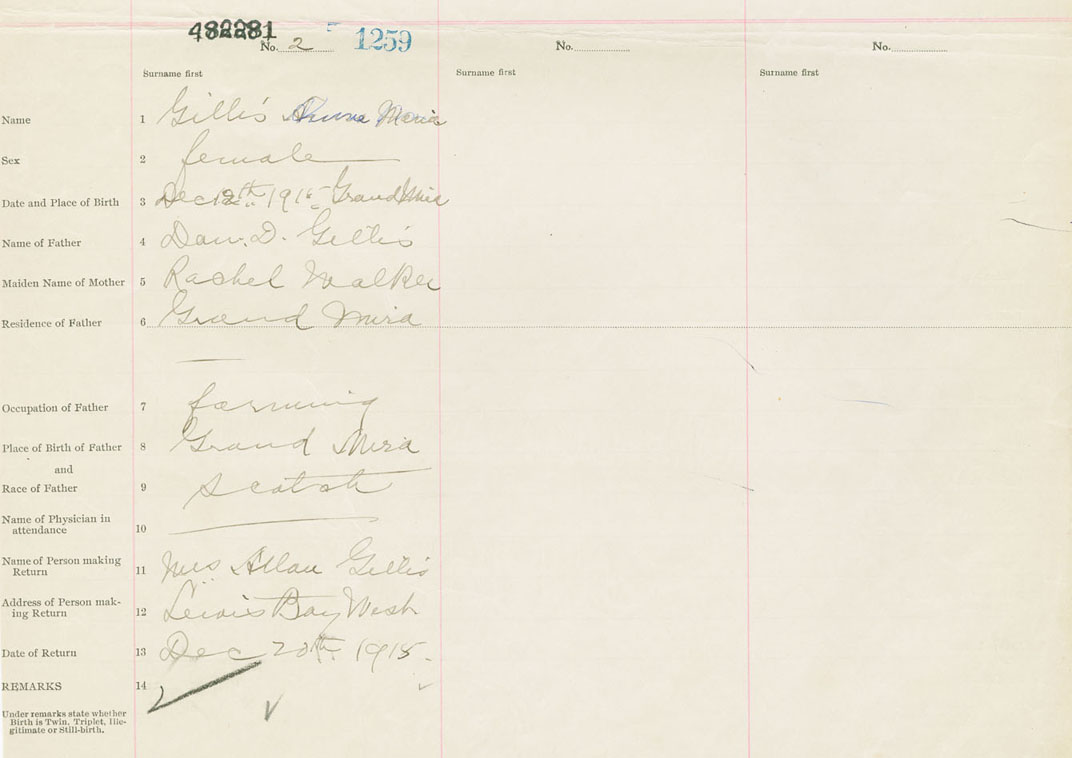 482281
No. 2 1259 No. No.
Surname first Surname first Surname first
Name 1 Gillis Anna Maria
Sex 2 female
Date and Place of Birth 3 Dec 12th 1915 Grand Mira
Name of Father 4 Dan. D. Gillis
Maiden Name of Mother 5 Rachel Walker
Residence of Father 6 Grand Mira
Occupation of Father 7 farming
Place of Birth of Father 8 Grand Mira
and
Race of Father 9 Scotch
Name of Physician in
attendance 10
Name of Person making
Return 11 Mrs Allan Gillis
Address of Person mak-
ing Return 12 Lewis Bay West
Date of Return 13 Dec 20th 1915.
REMARKS 14
Under remarks state whether
Birth is Twin, Triplet, Ille-
gitimate or Still-birth.